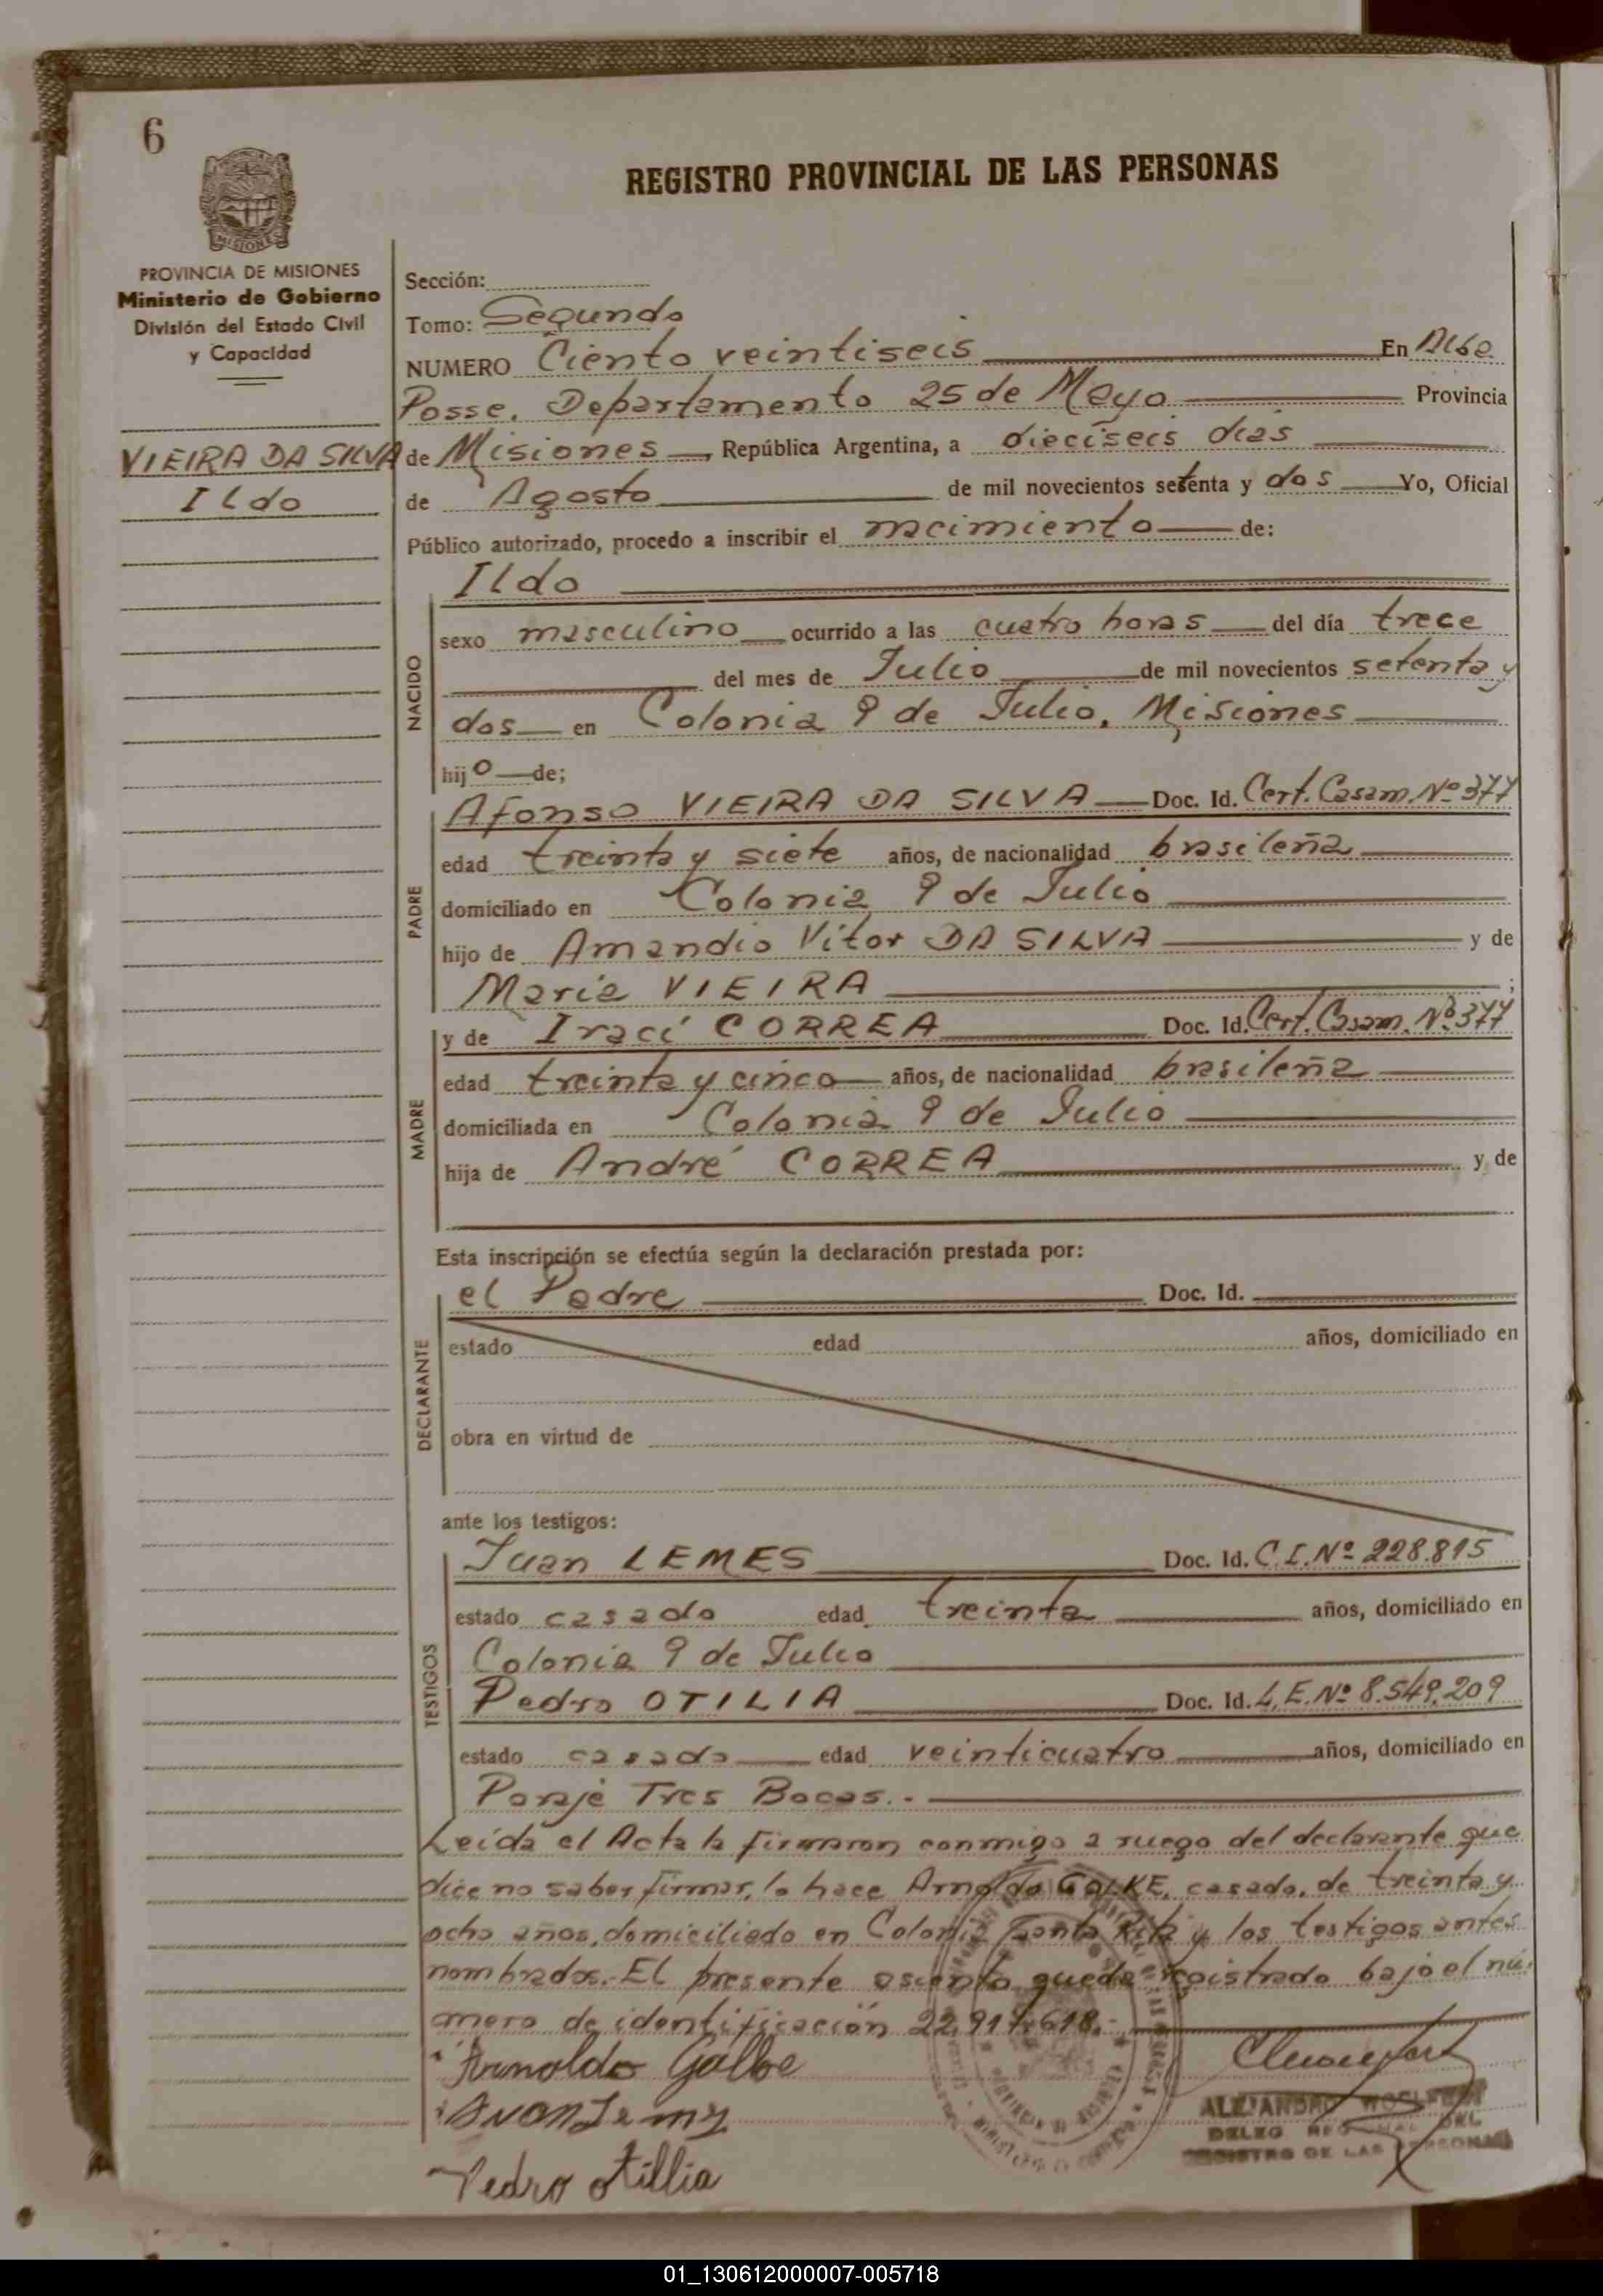 6
REGISTRO PROVINCIAL DE LAS PERSONAS
MISIONES
PROVINCIA DE MISIONES
Ministerio de Gobierno
División del Estado Civil
y Capacidad
VIEIRA DA SILVA
Ildo
Sección:
Tomo: Segundo
NUMERO Ciento veintiseis En Alba
Posse. Departamento 25 de Mayo Provincia
de Misiones, República Argentina, a dieciseis dias
de Agosto de mil novecientos setenta y dos Yo, Oficial
Público autorizado, procedo a inscribir el nacimiento de:
NACIDO
Ildo
sexo masculino ocurrido a las cuatro horas del día trece
del mes de Julio de mil novecientos setenta y
dos en Colonia 9 de Julio, Misiones
hijo de;
PADRE
Afonso VIEIRA DA SILVA Doc. Id. Cert. Casam. Nº 377
edad treinta y siete años, de nacionalidad brasileña
domiciliado en Colonia 9 de Julio
hijo de Amandio Vitor DA SILVA y de
Maria VIEIRA ;
MADRE
y de Iraci CORREA Doc. Id. Cert. Casam. Nº 377
edad treinta y cinco años, de nacionalidad brasileña
domiciliada en Colonia 9 de Julio
hija de André CORREA y de
Esta inscripción se efectúa según la declaración prestada por:
DECLARANTE
el Padre Doc. Id.
estado edad años, domiciliado en
obra en virtud de
ante los testigos:
TESTIGOS
Juan LEMES Doc. Id. C.I. Nº 228.815
estado casado edad treinta años, domiciliado en
Colonia 9 de Julio
Pedro OTILIA Doc. Id. L.E. Nº 8.549.209
estado casado edad veinticuatro años, domiciliado en
Paraje Tres Bocas.-
Leída el Acta la firmaron conmigo a ruego del declarante que
dice no saber firmar, lo hace Arnoldo GOLKE, casado, de treinta y
ocho años, domiciliado en Colonia Santa Rita y los testigos antes
nombrados.- El presente asiento queda registrado bajo el nú-
mero de identificación 22.917.618.-
Arnoldo Golke
Juan Lemes
Pedro Otillia
ALEJANDRO
DELEG REGIONAL DEL
REGISTRO DE LAS PERSONAS
01_130612000007-005718